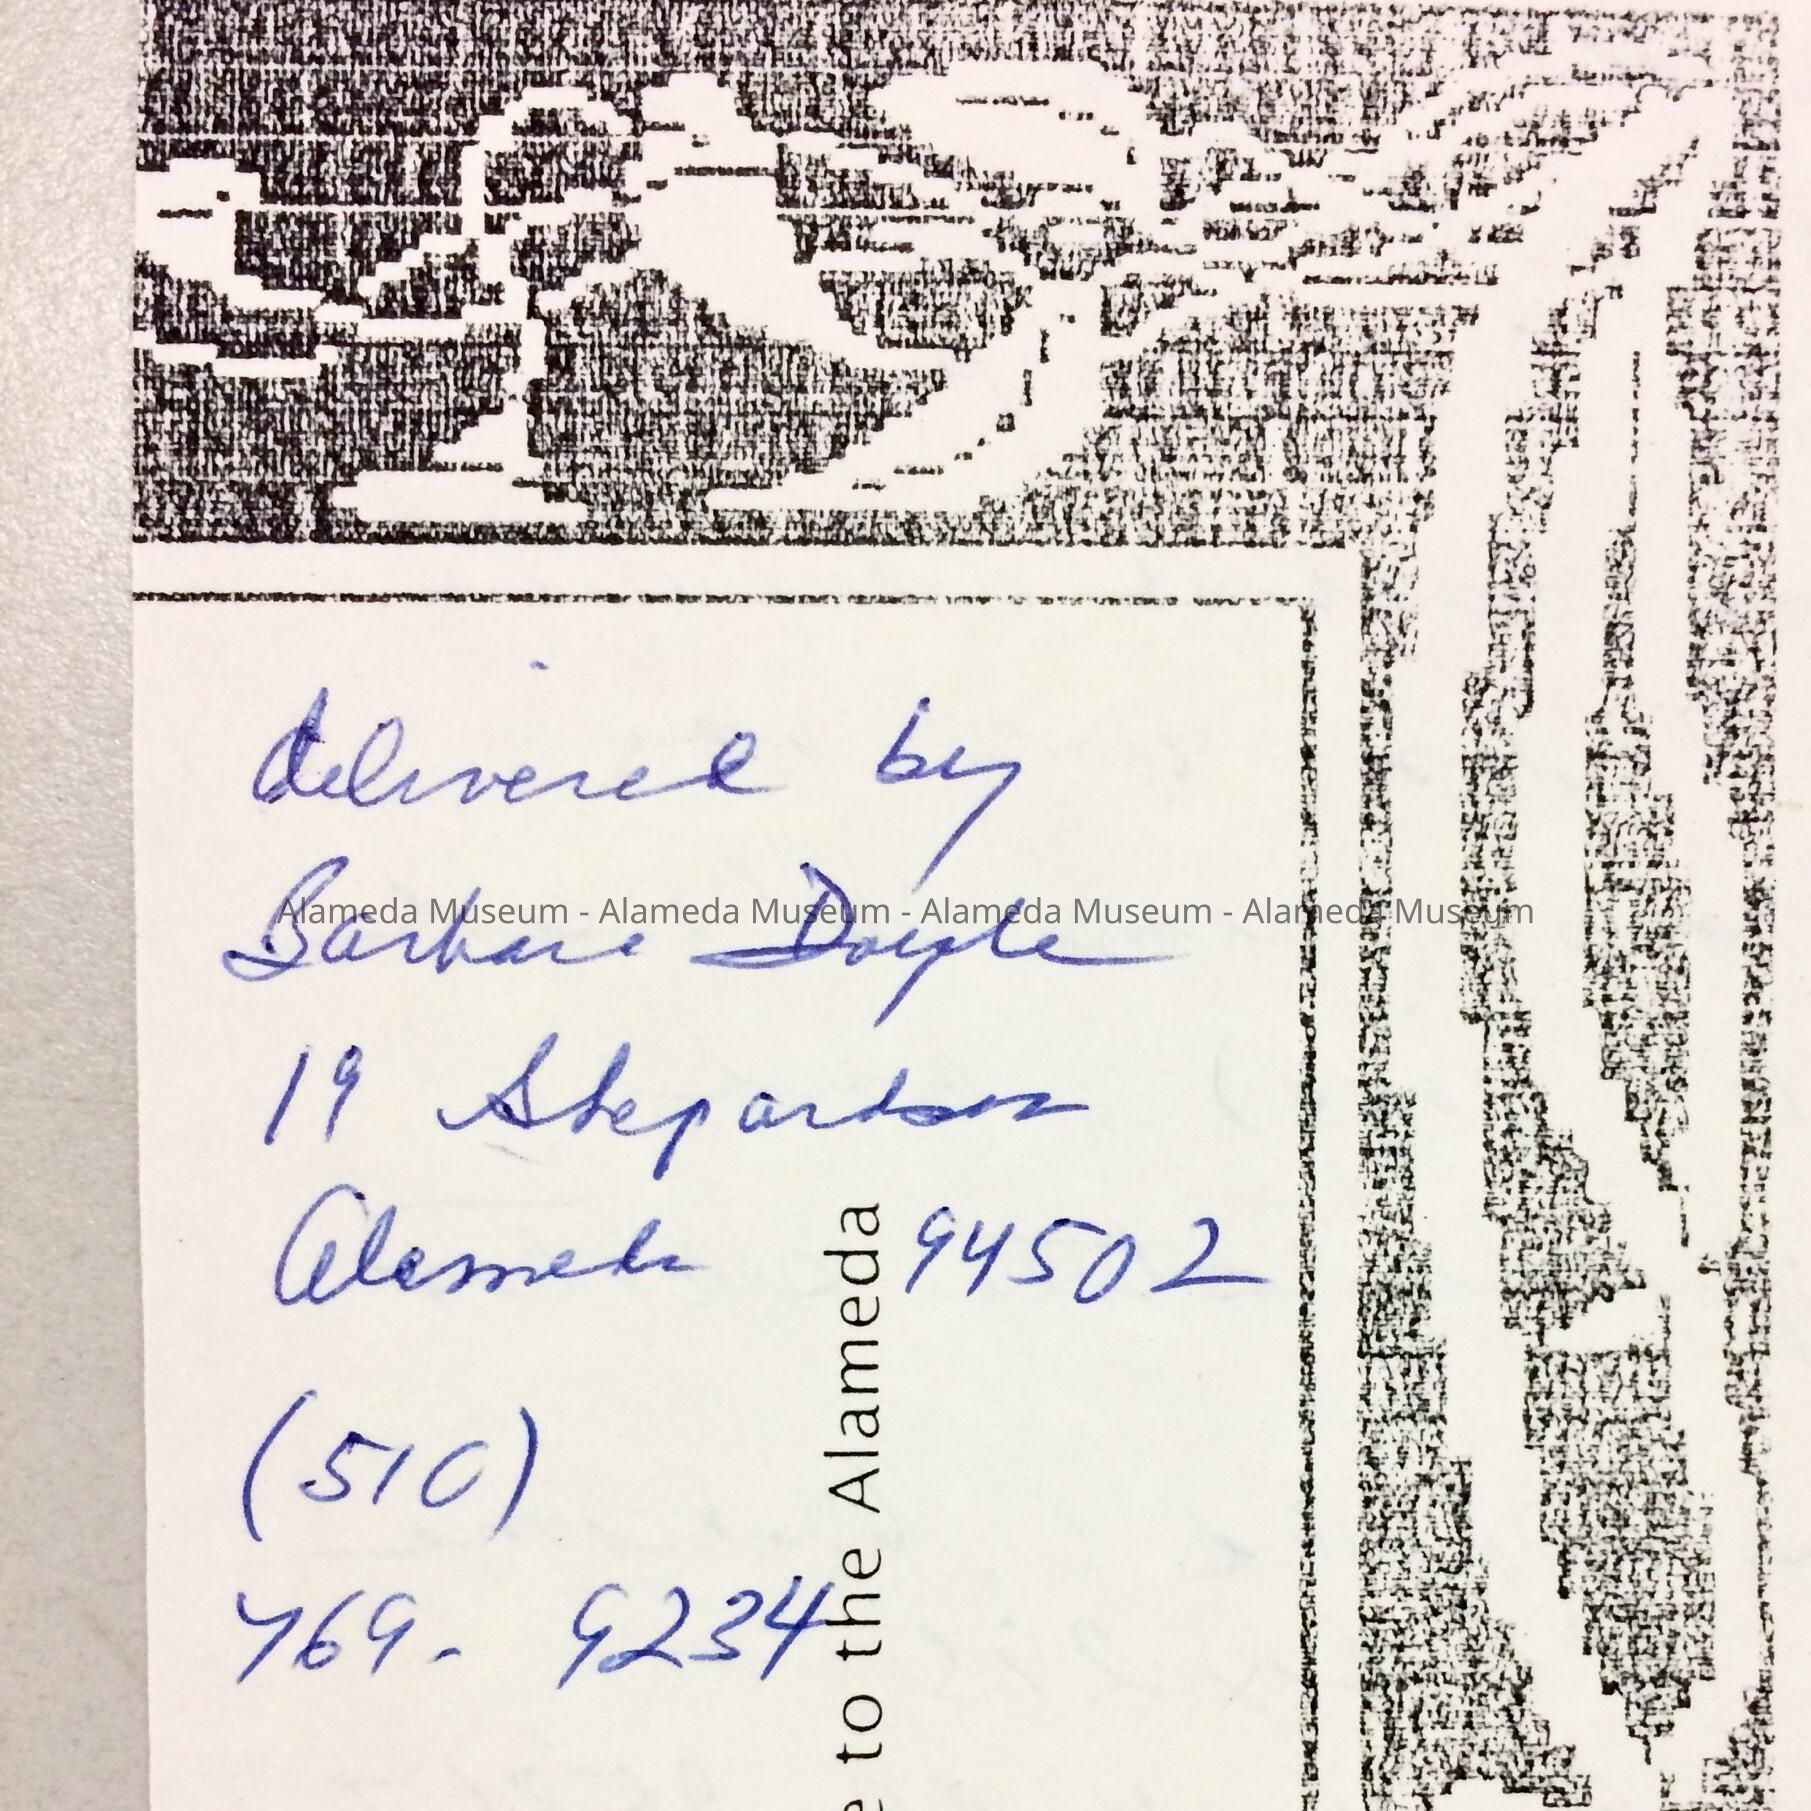 delivered by
Barbara Doyle
Alameda Museum - Alameda Museum - Alameda Museum - Alameda Museum
19 Shepardson
Alameda 94502
(510)
769- 9234
e to the Alameda